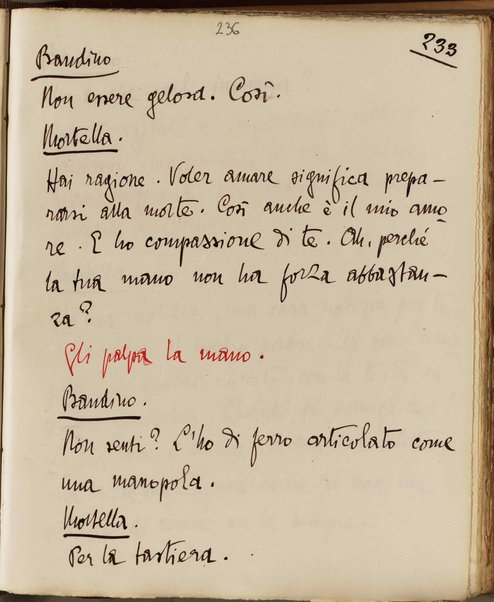 236
233
Bandino
Non essere gelosa. Così.
Mortella.
Hai ragione. Voler amare significa prepa-
rarsi alla morte. Così anche è il mio amo-
re. E ho compassione di te. Oh, perché
la tua mano non ha forza abbastan-
za?
Gli palpa la mano.
Bandino.
Non senti? L'ho di ferro articolato come
una manopola.
Mortella.
Per la tastiera.